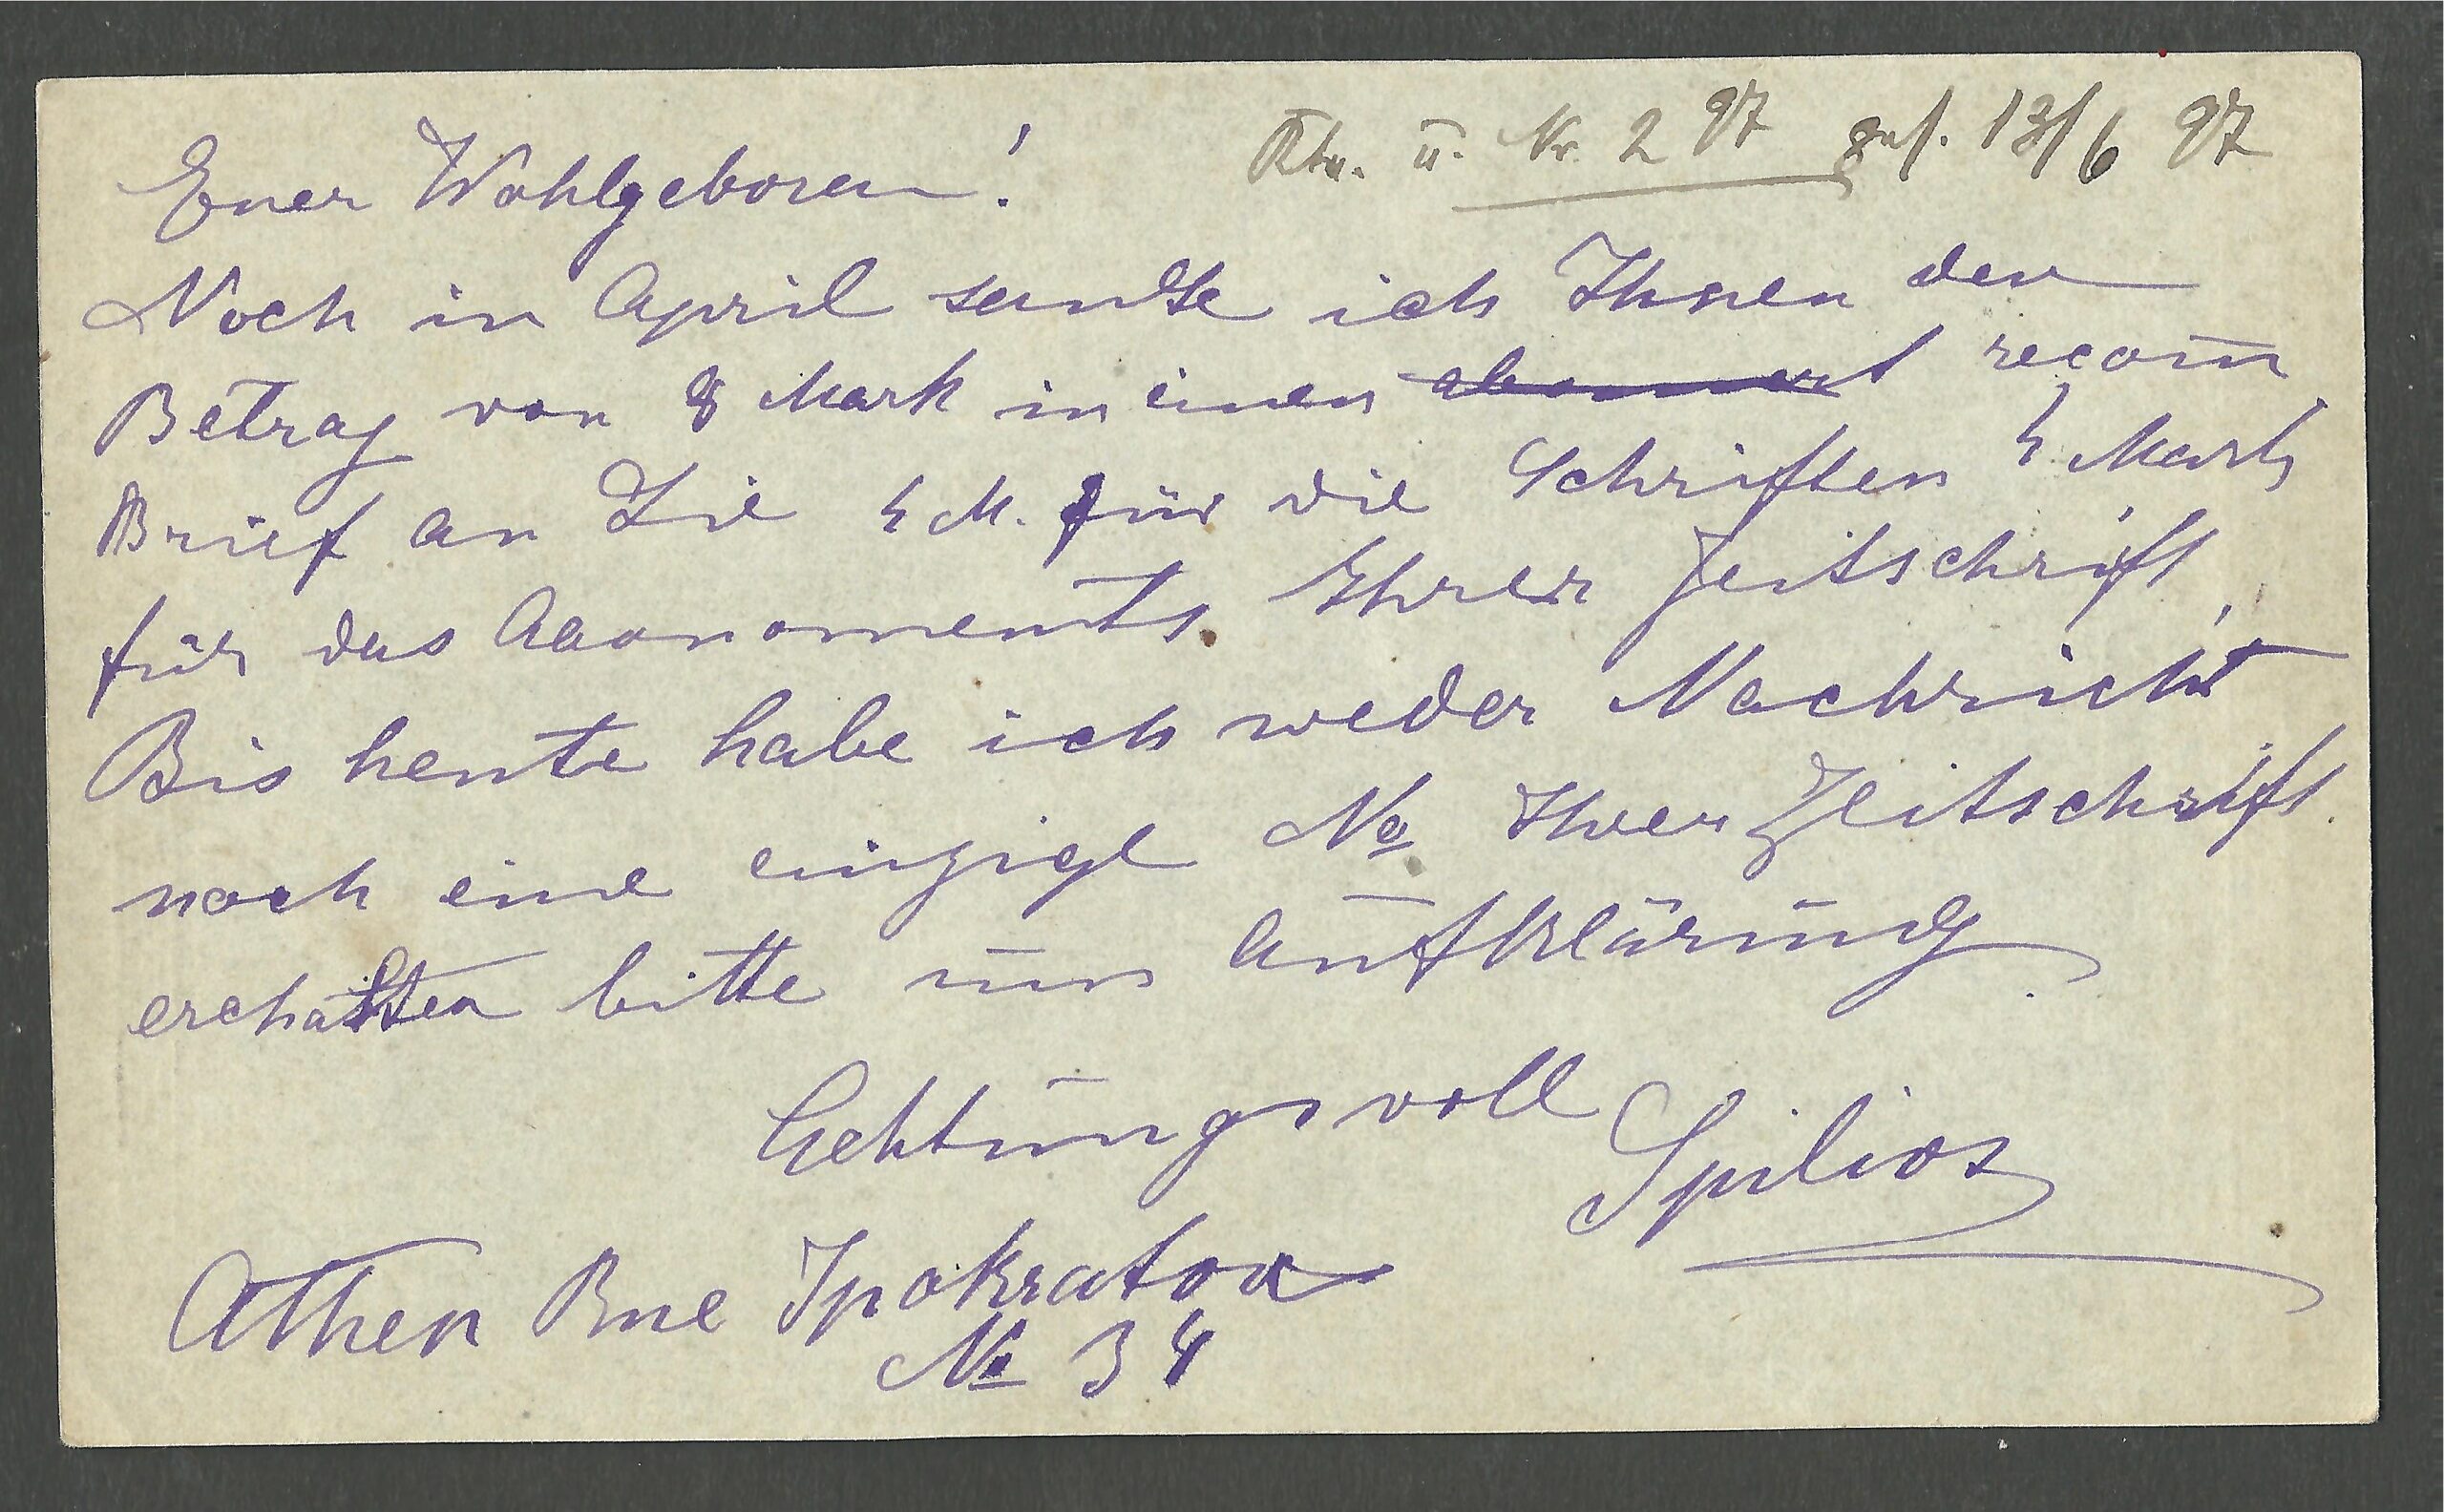 Nr. 2 97 13/6 97
Euer Wohlgeboren!
Noch in April sandte ich Ihnen den
Betrag von 8 Mark in einen recom̄
Brief an Sie 4 M. für die Schriften 4 Mark
für das Abonnoments Ihrer Zeitschrift,
Bis heute habe ich weder Nachricht
noch eine einzige No Ihrer Zeitschrift.
erhalten bitte um Aufklärung.
Achtungsvoll Spilios
Athen Rue Ipokratous
No 34